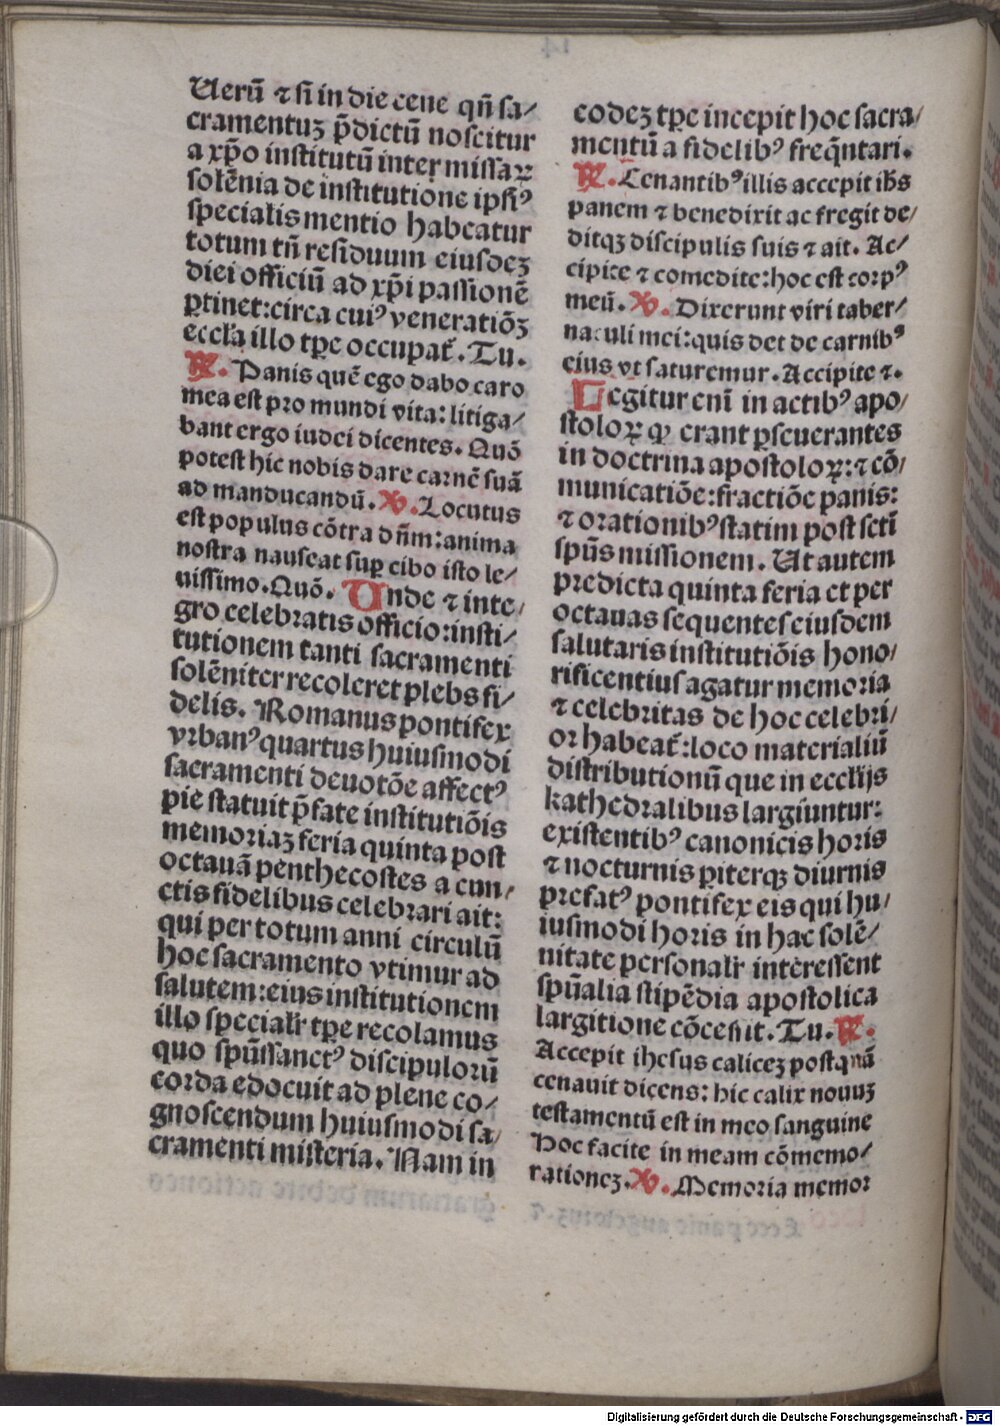 Uerū ⁊ si in die cene qn̄ sa⸗
cramentuꝫ p̄dictū noscitur
a xp̄o institutū inter missaꝝ
solēnia de institutione ipsiꝰ
specialis mentio habeatur
totum tn̄ residuum eiusdeꝫ
diei officiū ad xp̄i passionē
ꝑtinet: circa cuiꝰ veneratiōꝫ
eccl̄ia illo tꝑe occupat̄. Tu.
℟. Panis quē ego dabo caro
mea est pro mundi vita: litiga⸗
bant ergo iudei dicentes. Quō
potest hic nobis dare carnē suā
ad manducandū. ℣. Locutus
est populus cōtra dn̄m: anima
nostra nauseat suꝑ cibo isto le⸗
uissimo. Quō. Unde ⁊ inte⸗
gro celebratis officio: insti⸗
tutionem tanti sacramenti
solēniter recoleret plebs fi⸗
delis. Romanus pontifex
vrbanꝰ quartus huiusmodi
sacramenti deuotōe affectꝰ
pie statuit p̄fate institutiōis
memoriaꝫ feria quinta post
octauā penthecostes a cun⸗
ctis fidelibus celebrari ait:
qui per totum anni circulū
hoc sacramento vtimur ad
salutem: eius institutionem
illo speciali̅r tꝑe recolamus
quo spūssanctꝰ discipulorū
corda edocuit ad plene co⸗
gnoscendum huiusmodi sa⸗
cramenti misteria. Nam in
codeꝫ tꝑe incepit hoc sacra⸗
mentū a fidelibꝰ freq̄ntari.
℟. Cenantibꝰ illis accepit ihs
panem ⁊ benedixit ac fregit de⸗
ditqꝫ discipulis suis ⁊ ait. Ac⸗
cipite ⁊ comedite: hoc est corpꝰ
meū. ℣. Dixerunt viri taber⸗
naculi mei: quis det de carnibꝰ
eius vt saturemur. Accipite ⁊.
Legitur eni̅ in actibꝰ apo⸗
stoloꝝ ꝙ erant ꝑseuerantes
in doctrina apostoloꝝ: ⁊ cō⸗
municatiōe: fractiōe panis:
⁊ orationibꝰ statim post scti̅
spūs missionem. Ut autem
predicta quinta feria et per
octauas sequentes eiusdem
salutaris institutiōis hono⸗
rificentius agatur memoria
⁊ celebritas de hoc celebri⸗
or habeat̄: loco materialiū
distributionū que in eccl̄ijs
kathedralibus largiuntur:
existentibꝰ canonicis horis
⁊ nocturnis ꝑiterqꝫ diurnis
prefatꝰ pontifex eis qui hu⸗
iusmodi horis in hac solē⸗
nitate personali̅r interessent
spūalia stipēdia apostolica
largitione cōcessit. Tu. ℟.
Accepit ihesus caliceꝫ postquā
cenauit dicens: hic calix nouuꝫ
testamentū est in meo sanguine
Hoc facite in meam cōmemo⸗
rationeꝫ. ℣. Memoria memor
Digitalisierung gefördert durch die Deutsche Forschungsgemeinschaft - DFG